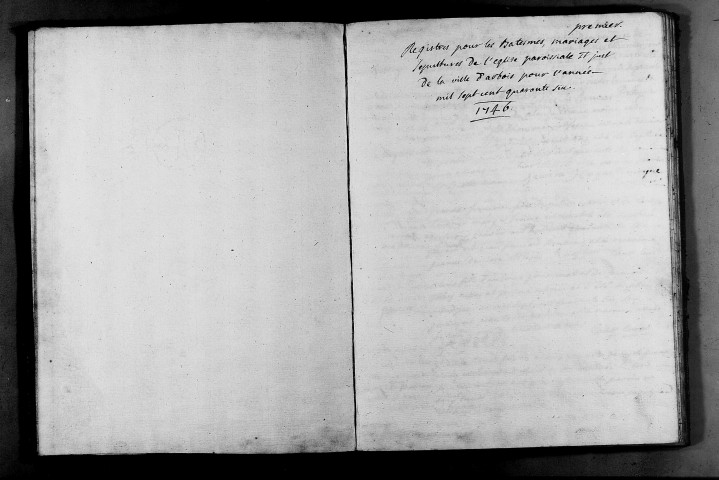 premier.
Registres pour les Batesmes, mariages et
sepultures de l'eglise paroissiale St just
de la ville d'arbois pour l'année
mil sept cent quarante six.
1746.